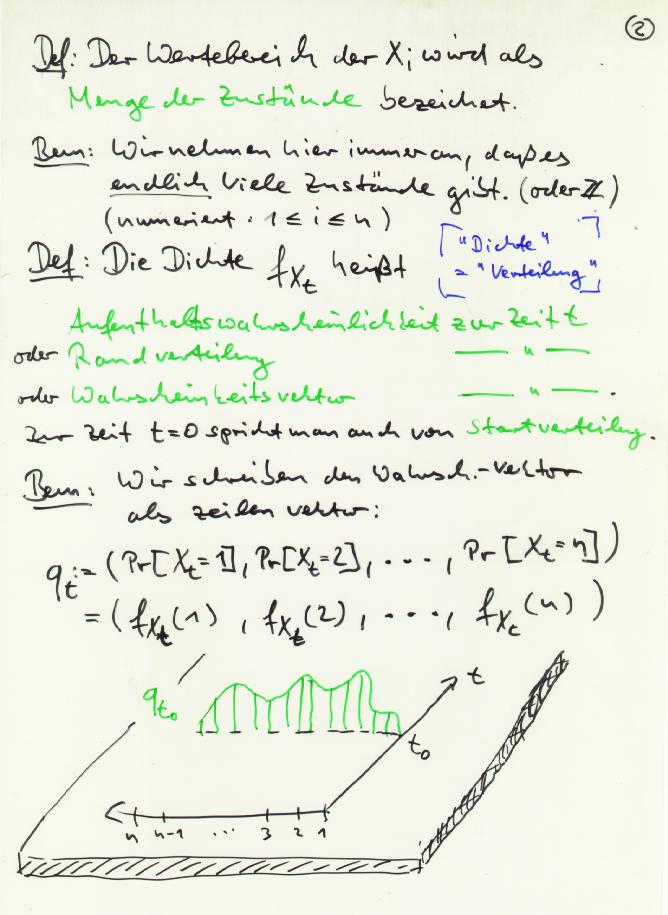 ②
Def: Der Wertebereich der Xi wird als
Menge der Zustände bezeichnet.
Bem: Wir nehmen hier immer an, daß es
endlich viele Zustände gibt. (oder ℤ)
(numeriert. 1 ≤ i ≤ n)
Def: Die Dichte f_{X_t} heißt
"Dichte"
= "Verteilung"
Aufenthaltswahrscheinlichkeit zur Zeit t
oder Randverteilung — " —
oder Wahrscheinkeitsvektor — " — .
Zur Zeit t=0 spricht man auch von Startverteilung.
Bem: Wir schreiben den Wahrsch.-vektor
als Zeilenvektor:
q_t := (Pr[X_t=1], Pr[X_t=2], ..., Pr[X_t=n])
= (f_{X_t}(1), f_{X_t}(2), ..., f_{X_t}(n))
q_{t_0}
t
t_0
n n-1 ... 3 2 1